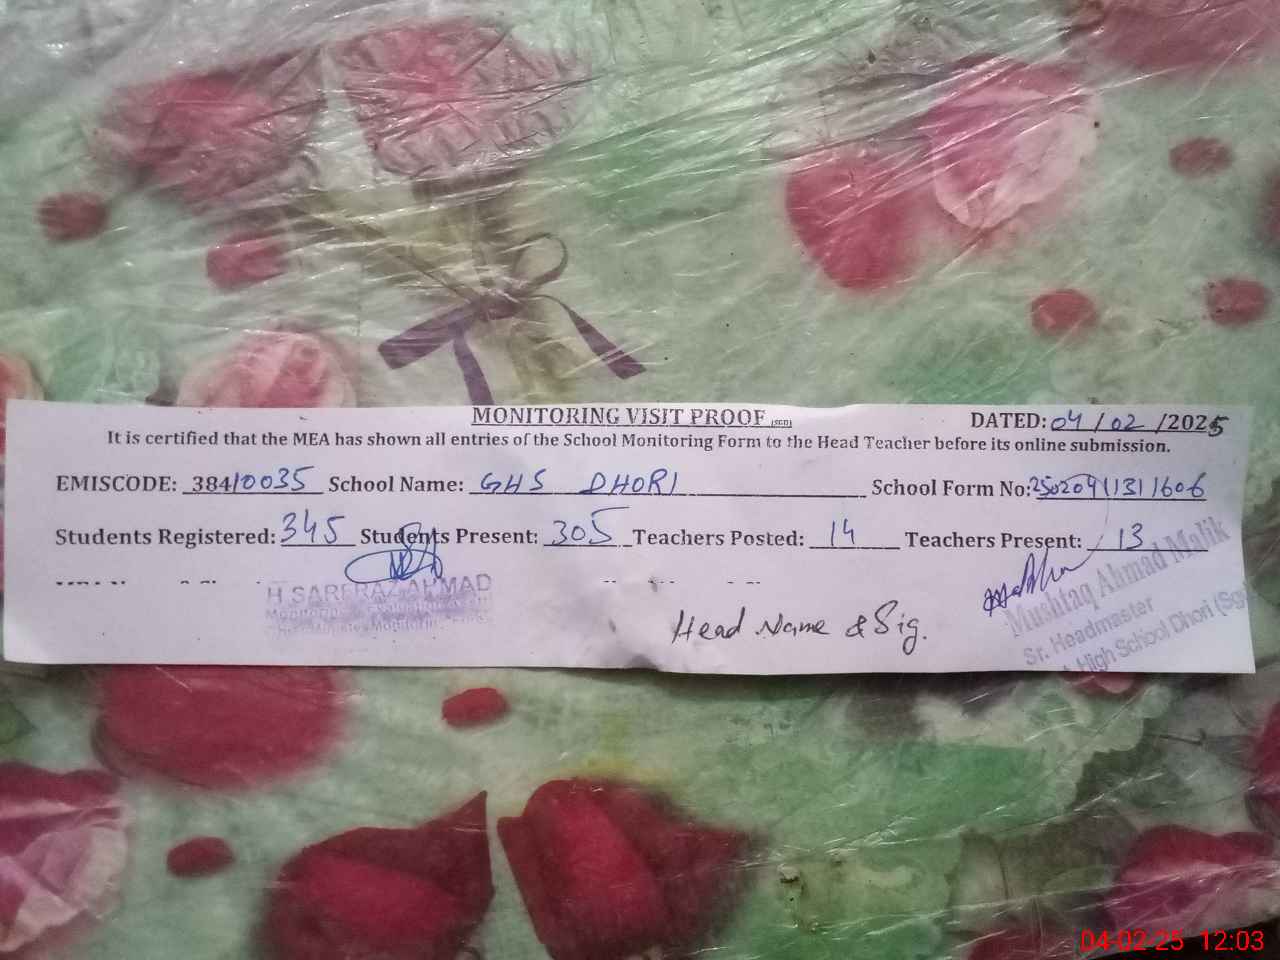 MONITORING VISIT PROOF
DATED: 04/02/2025
It is certified that the MEA has shown all entries of the School Monitoring Form to the Head Teacher before its online submission.
EMISCODE: 38410035 School Name: GHS DHORI School Form No: 2502091131 1606
Students Registered: 345 Students Present: 305 Teachers Posted: 14 Teachers Present: 13
SARFRAZ AHMAD
Monitoring & Evaluation
Head Name & Sig.
Mushtaq Ahmad Malik
Sr. Headmaster
High School Dhori (Sg
04-02-25 12:03